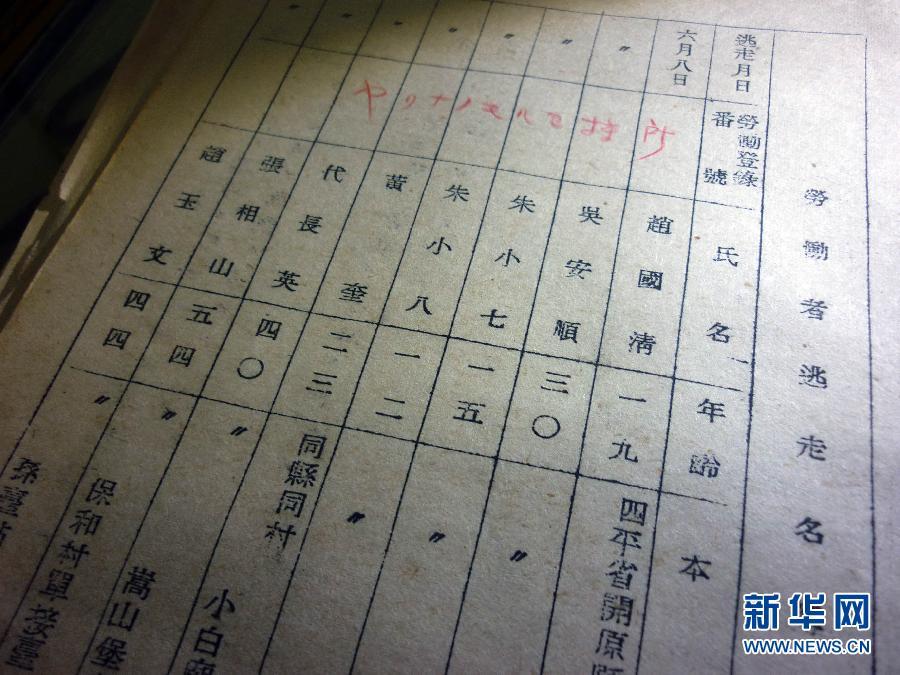 勞働者逃走名
逃走月日
勞働登錄
番號
氏名
年齡
本
六月八日
趙國淸
一九
四平省開原
〃
吳安順
三〇
〃
〃
朱小七
一五
〃
〃
朱小八
一二
〃
〃
黃奎
二三
同縣同村
〃
代長英
四〇
〃
小白
張相山
五四
〃
嵩山堡
趙玉文
四四
〃
保和村單接臺
孫臺
新华网
WWW.NEWS.CN